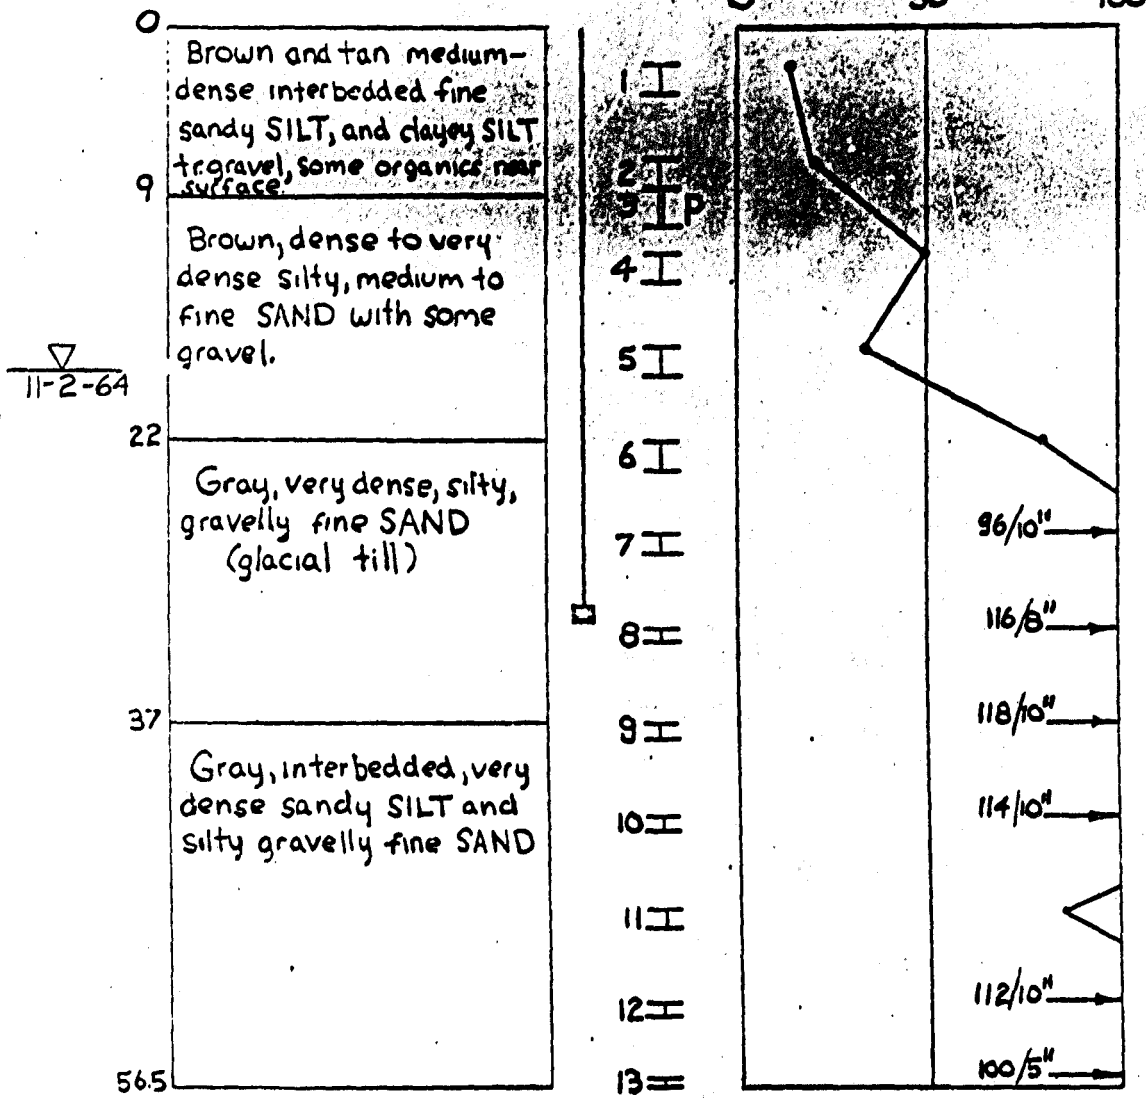 0 50 100
0
Brown and tan medium-
dense interbedded fine
sandy SILT, and clayey SILT
tr. gravel, some organics near
surface.
9
Brown, dense to very
dense silty, medium to
fine SAND with some
gravel.
11-2-64
22
Gray, very dense, silty,
gravelly fine SAND
(glacial till)
37
Gray, interbedded, very
dense sandy SILT and
silty gravelly fine SAND
56.5
1
2
3 P
4
5
6
7
8
9
10
11
12
13
96/10"
116/8"
118/10"
114/10"
112/10"
100/5"